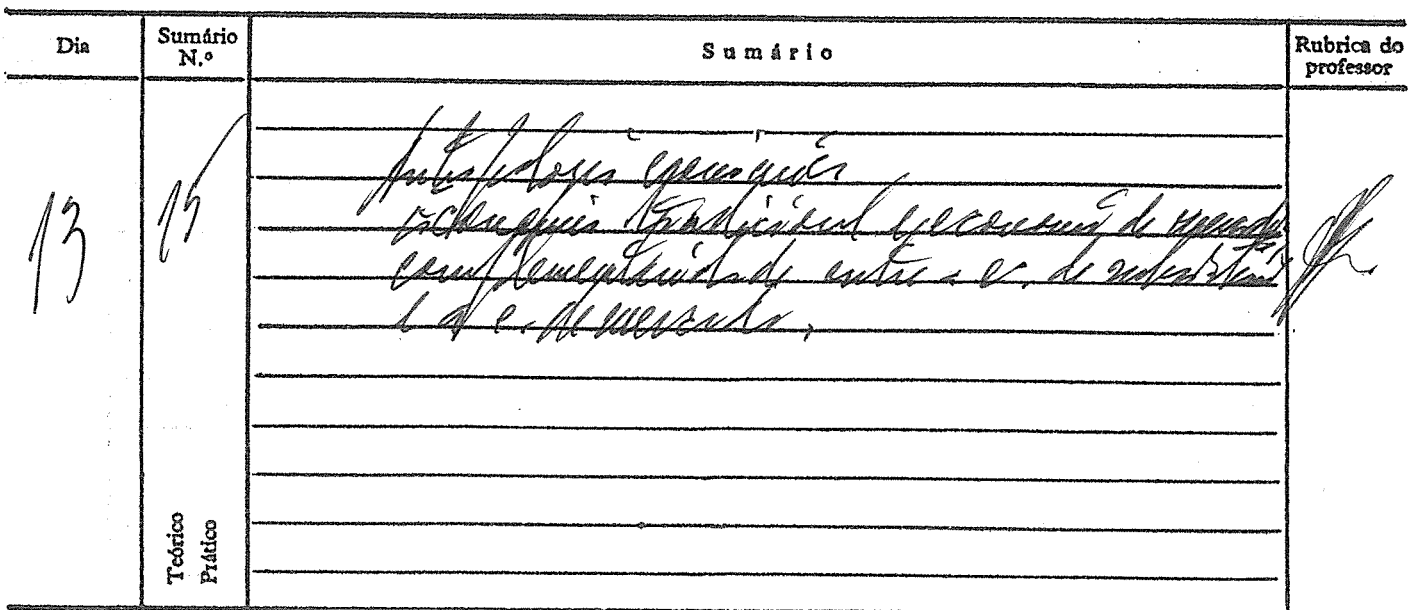 Dia
Sumário
N.º
Sumário
Rubrica do
professor
13
15
Antropologia económica
Economia tradicional e economia de mercado
complementaridade entre a ec. de subsistência
e a e. de mercado.
Teórico
Prático